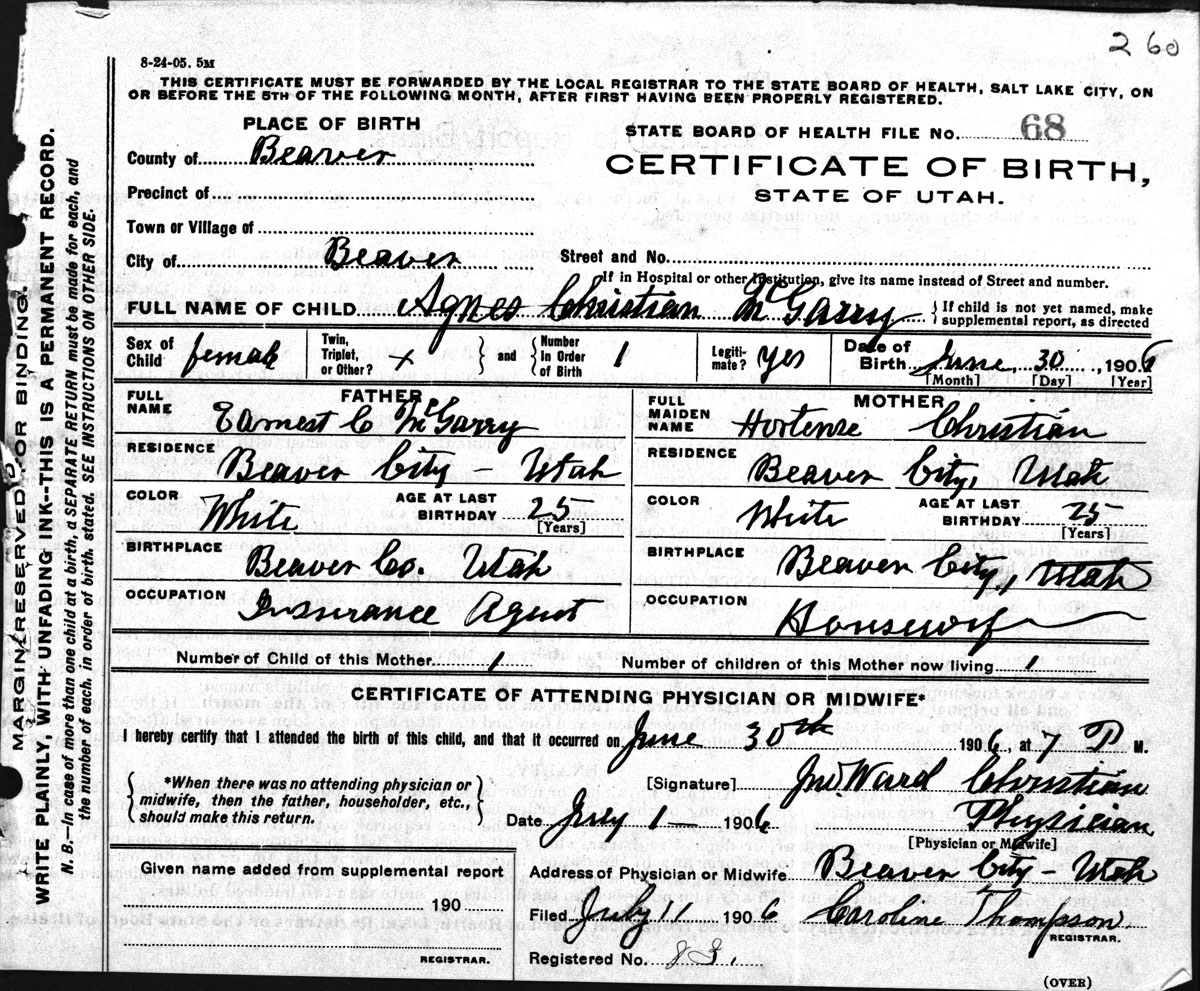 260
8-24-05. 5M
THIS CERTIFICATE MUST BE FORWARDED BY THE LOCAL REGISTRAR TO THE STATE BOARD OF HEALTH, SALT LAKE CITY, ON
OR BEFORE THE 5TH OF THE FOLLOWING MONTH, AFTER FIRST HAVING BEEN PROPERLY REGISTERED.
MARGIN RESERVED FOR BINDING.
WRITE PLAINLY, WITH UNFADING INK--THIS IS A PERMANENT RECORD.
N. B.—In case of more than one child at a birth, a SEPARATE RETURN must be made for each, and
the number of each, in order of birth, stated. SEE INSTRUCTIONS ON OTHER SIDE.
PLACE OF BIRTH
County of Beaver
Precinct of
Town or Village of
City of Beaver
STATE BOARD OF HEALTH FILE No. 68
CERTIFICATE OF BIRTH,
STATE OF UTAH.
Street and No.
If in Hospital or other Institution, give its name instead of Street and number.
FULL NAME OF CHILD Agnes Christian McGarry { If child is not yet named, make
supplemental report, as directed
Sex of Child female
Twin, Triplet, or Other? x } and { Number in Order of Birth 1
Legitimate? yes
Date of Birth June 30, 1906
[Month] [Day] [Year]
FATHER
FULL NAME Earnest C McGarry
RESIDENCE Beaver City - Utah
COLOR White AGE AT LAST BIRTHDAY 25
[Years]
BIRTHPLACE Beaver Co. Utah
OCCUPATION Insurance Agent
MOTHER
FULL MAIDEN NAME Hortense Christian
RESIDENCE Beaver City, Utah
COLOR White AGE AT LAST BIRTHDAY 25
[Years]
BIRTHPLACE Beaver City, Utah
OCCUPATION Housewife
Number of Child of this Mother 1 Number of children of this Mother now living 1
CERTIFICATE OF ATTENDING PHYSICIAN OR MIDWIFE*
I hereby certify that I attended the birth of this child, and that it occurred on June 30th 1906, at 7 P M.
{ *When there was no attending physician or
midwife, then the father, householder, etc.,
should make this return. }
[Signature] Jno. Ward Christian
Date July 1 - 1906 Physician
[Physician or Midwife]
Address of Physician or Midwife Beaver City - Utah
Filed July 11 1906 Caroline Thompson.
REGISTRAR.
Registered No. 83.
Given name added from supplemental report
190
REGISTRAR.
(OVER)